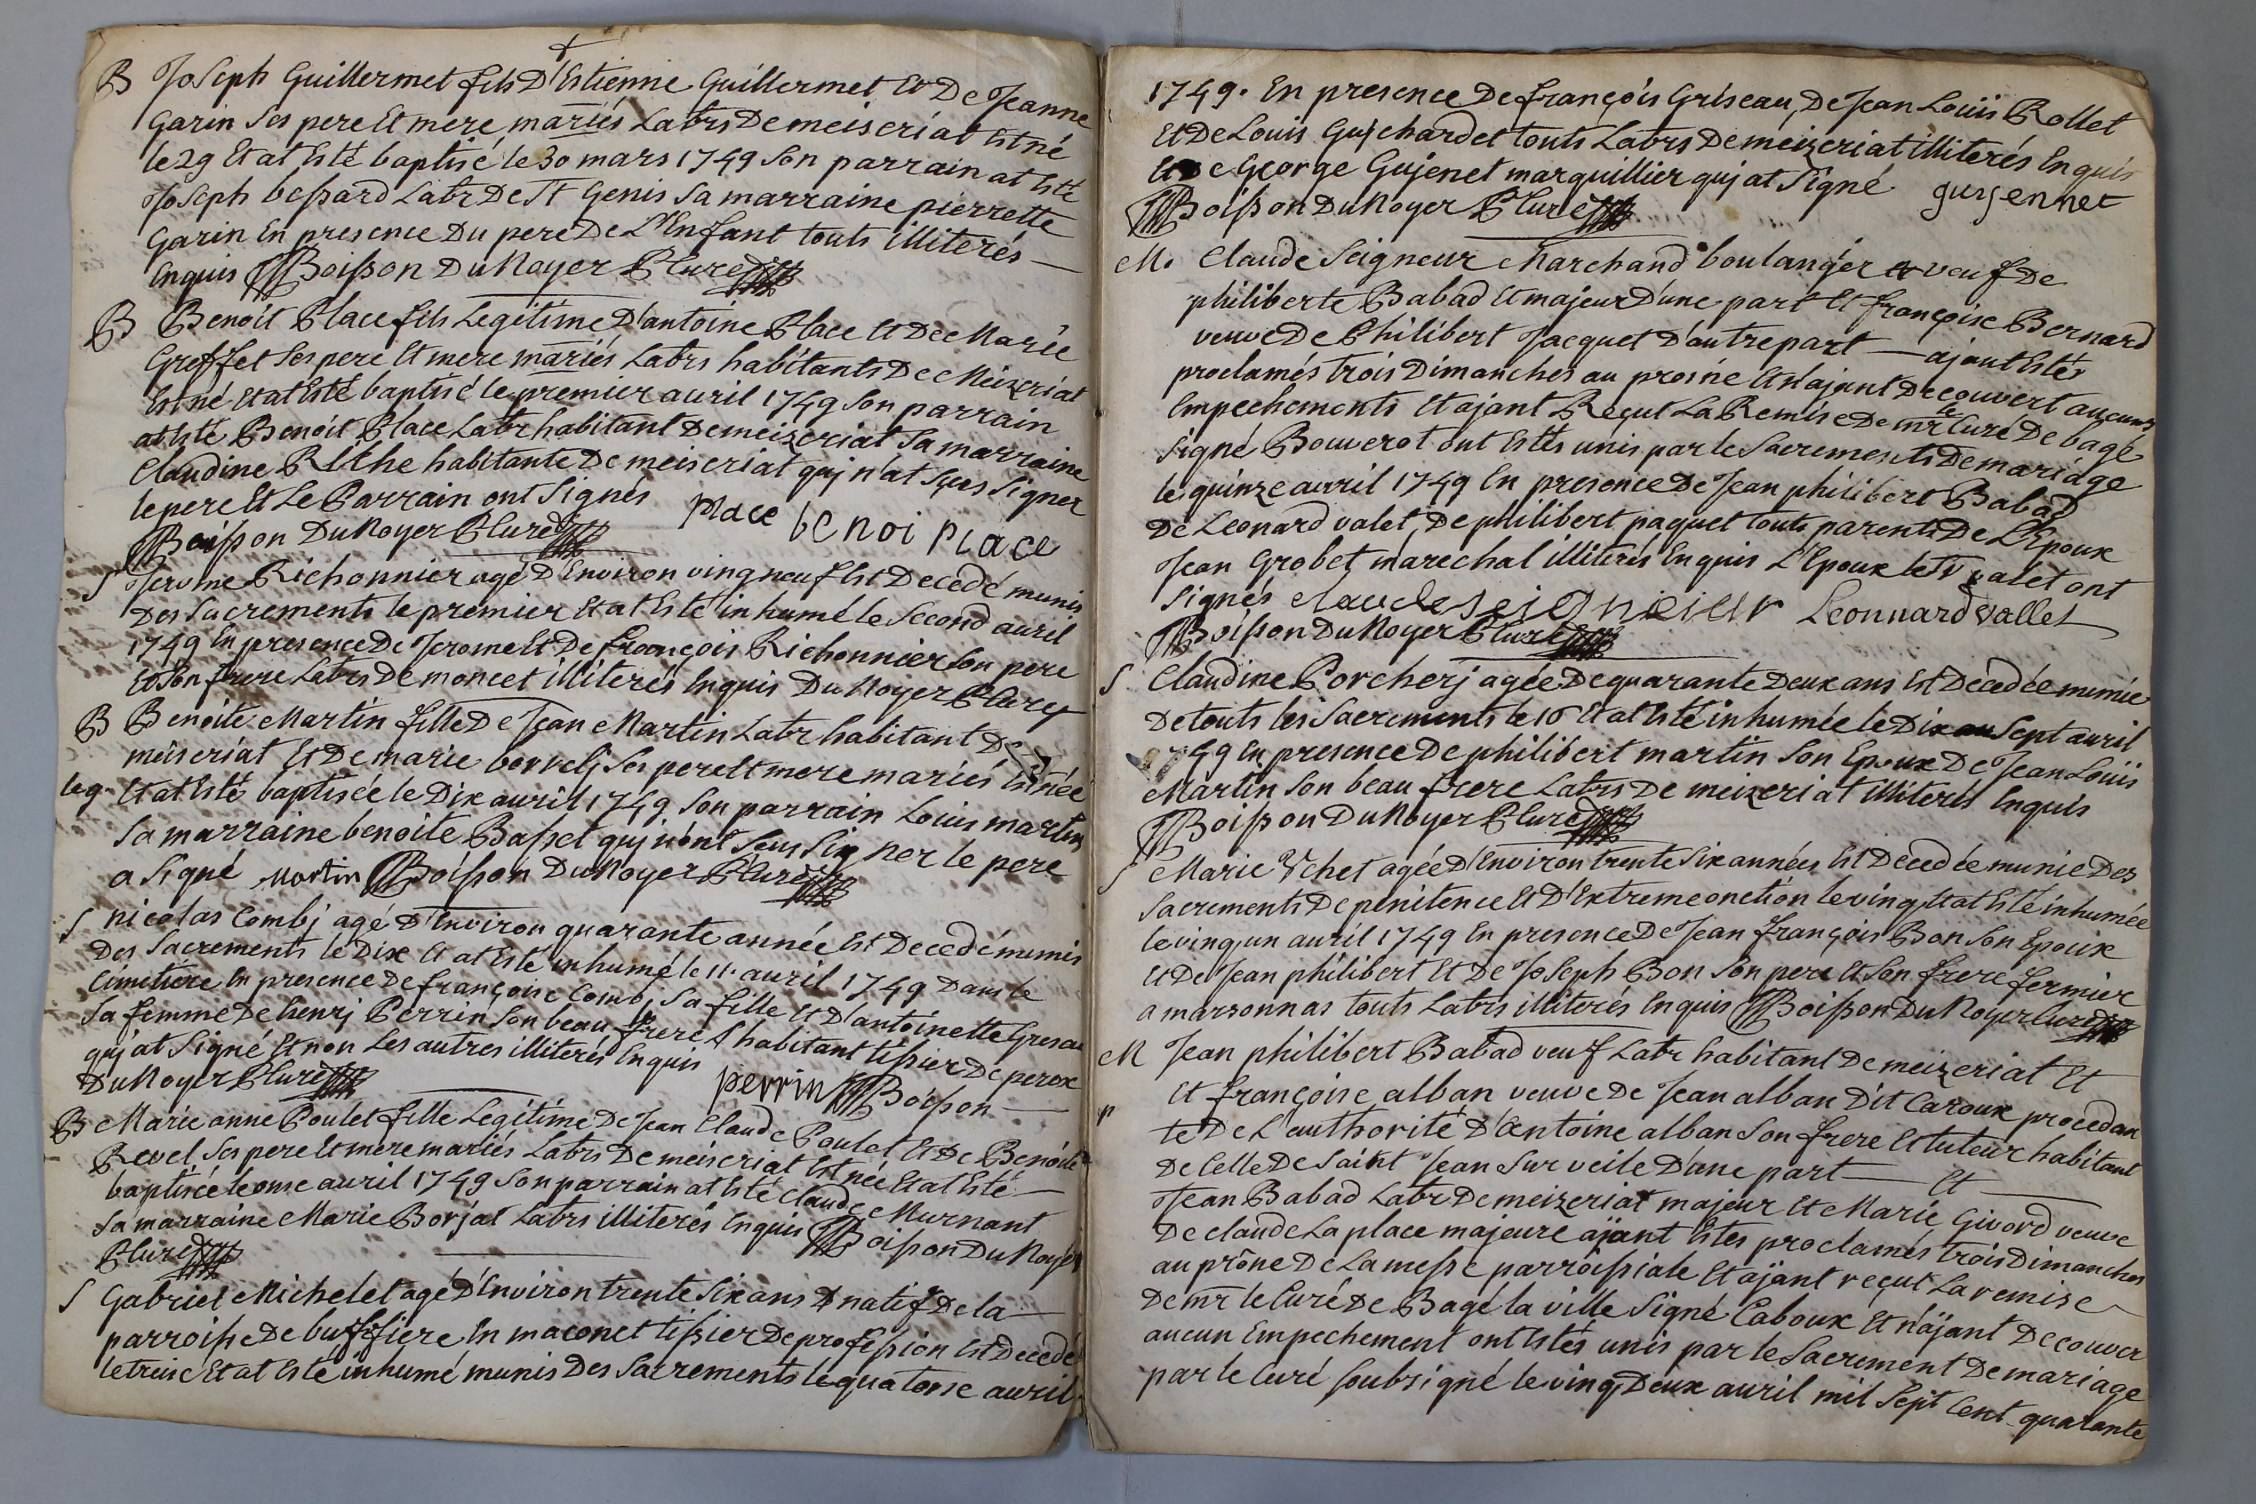 B Joseph Guillermet fils D'Estienne Guillermet Et De Jeanne
Garin Ses pere Et mere mariés Labrs De meiseriat Est né
le 29 Et at Esté baptisé le 30 mars 1749 Son parrain at Esté
Joseph bessard Labr De St Genis Sa marraine pierrette
Garin En presence Du pere De L'Enfant touts illiterés
Enquis Boisson DuNoyer Curé
B Benoit Place fils Legitime D'antoine Place Et De Marie
Greffet Ses pere Et mere mariés Labrs habitants De Meizeriat
Est né Et at Esté baptisé le premier avril 1749 Son parrain
at Esté Benoit Place Labr habitant De meizeriat Sa marraine
Claudine Rithe habitante De meiseriat quj n'at Sçus Signer
le pere Et Le Parrain ont Signés place benoi place
Boisson DuNoyer Curé
S Jerome Richonnier agé D'Environ vingneuf Est Decedé munis
Des Sacrements le premier Et at Esté inhumé le Second avril
1749 En presence De Jerome Et De françois Richonnier Son pere
Et Son frere Labrs De moncet illiterés Enquis DuNoyer Curé
B Benoite Martin fille De Jean Martin Labr habitant De
meiseriat Et De marie borrelj Ses pere Et mere mariés Est née
leg. Et at Esté baptisée le Dix avril 1749 Son parrain Louis martin
Sa marraine benoite Basset quj n'ont Sçus Signer le pere
a Signé Martin Boisson DuNoyer Curé
S nicolas Combj agé D'Environ quarante année Est Decedé munis
Des Sacrements le Dix Et at Esté inhumé le 11 avril 1749 Dans le
Cimetiere En presence De françoise Combj Sa fille Et D'antoinette Gresau
Sa femme De henrj Perrin Son beau frere habitant tissier De perox
quj at Signé Et non Les autres illiterés Enquis perrin Boisson
DuNoyer Curé
B Marie anne Poulet fille Legitime De Jean Claude Poulet Et De Benoite
Revel Ses pere Et mere mariés Labrs De meiseriat Est née Et at Esté
baptisée le onse avril 1749 Son parrain at Esté Claude Murnant
Sa marraine Marie Borjat Labrs illiterés Enquis Boisson DuNoyer
Curé
S Gabriel Michelet agé D'Environ trente Six ans natif De la
parroisse De buffiere En maconet tissier De profession Est Decedé
le treise Et at Esté inhumé munis Des Sacrements le quatorse avril
1749. En presence De françois Griseau, De Jean Loüis Rollet
Et De Louis Gujchardet touts Labrs De meizeriat illiterés Enquis
Et De George Gujenet marquillier quj at Signé gurjennet
Boisson DuNoyer Curé
M. Claude Seigneur Marchand boulanger veuf De
philiberte Babad Et majeur D'une part Et françoise Bernard
veuve De Philibert Jacquet D'autre part ajant Esté
proclamés trois Dimanches au prosne Et n'ajant Decouvert aucuns
Empechements Et ajant Reçut La Remise De mr le Curé De bagé
Signé Bouverot ont Estés unis par le Sacrements De mariage
le quinze avril 1749 En presence De Jean philibert Babad
De Leonard valet, De philibert paquet touts parents De L'Epoux
Jean Grobet maréchal illiterés Enquis L'Epoux le Sr valet ont
Signés claude seigneieur Leonnard vallet
Boisson DuNoyer Curé
S Claudine Porcherj agée De quarante Deux ans Est Decedée munie
De touts les Sacrements le 16 Et at Esté inhumée le Dix Sept avril
1749 En presence De philibert martin Son Epoux De Jean Louis
Martin Son beau frere Labrs De meizeriat illiterés Enquis
Boisson DuNoyer Curé
S Marie Vchet agée D'Environ trente Six années Est Decedée munie Des
Sacrements De penitence Et D'Extreme onction le vingt Et at Esté inhumée
le ving un avril 1749 En presence De Jean françois Bon Son Epoux
Et De Jean philibert Et De Joseph Bon Son pere Et Son frere fermier
a marsonnas touts Labrs illiterés Enquis Boisson DuNoyer Curé
M Jean philibert Babad veuf Labr habitant De meizeriat Et
Et françoise alban veuve De Jean alban Dit Caroux procedan
te De L'authorité D'Antoine alban Son frere Et tuteur habitant
De Celle De Saint Jean Sur veile D'une part Et
Jean Babad Labr De meizeriat majeur Et Marie Givord veuve
De claude La place majeure ajant Estés proclamés trois Dimanches
au prône De La messe parroissiale Et aÿant reçut La remise
De mr le Curé De Bagé la ville Signé Caboux Et n'aÿant Decouver
aucun Empechement ont Estés unis par le Sacrement De mariage
par le Curé Soubsigné le ving Deux avril mil Sept Cent quarante